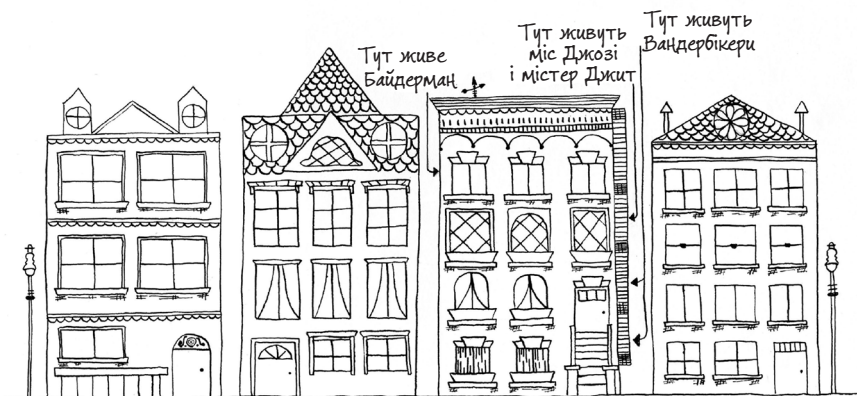 Тут живе
Байдерман
Тут живуть
міс Джозі
і містер Джит
Тут живуть
Вандербікери